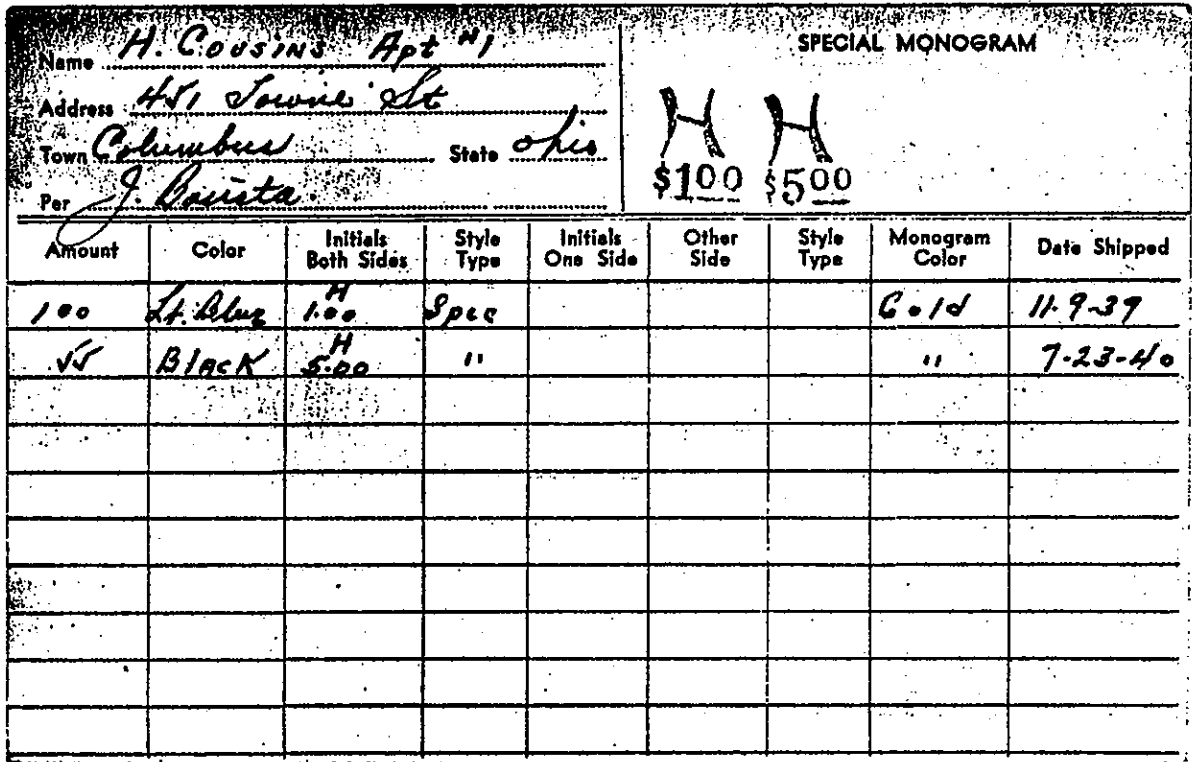 Name H. Cousins Apt #1
Address 451 Towne St
Town Columbus State Ohio
Per J.
SPECIAL MONOGRAM
H H
$1.00 $5.00
Amount Color Initials Both Sides Style Type Initials One Side Other Side Style Type Monogram Color Date Shipped
100 Lt. Blue H 1.00 Spec Gold 11-9-39
Black H 5.00 " " 7-23-40